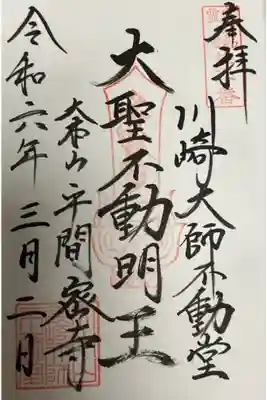 奉拝
川崎大師不動堂
大聖不動明王
大本山平間密寺
令和六年三月二日